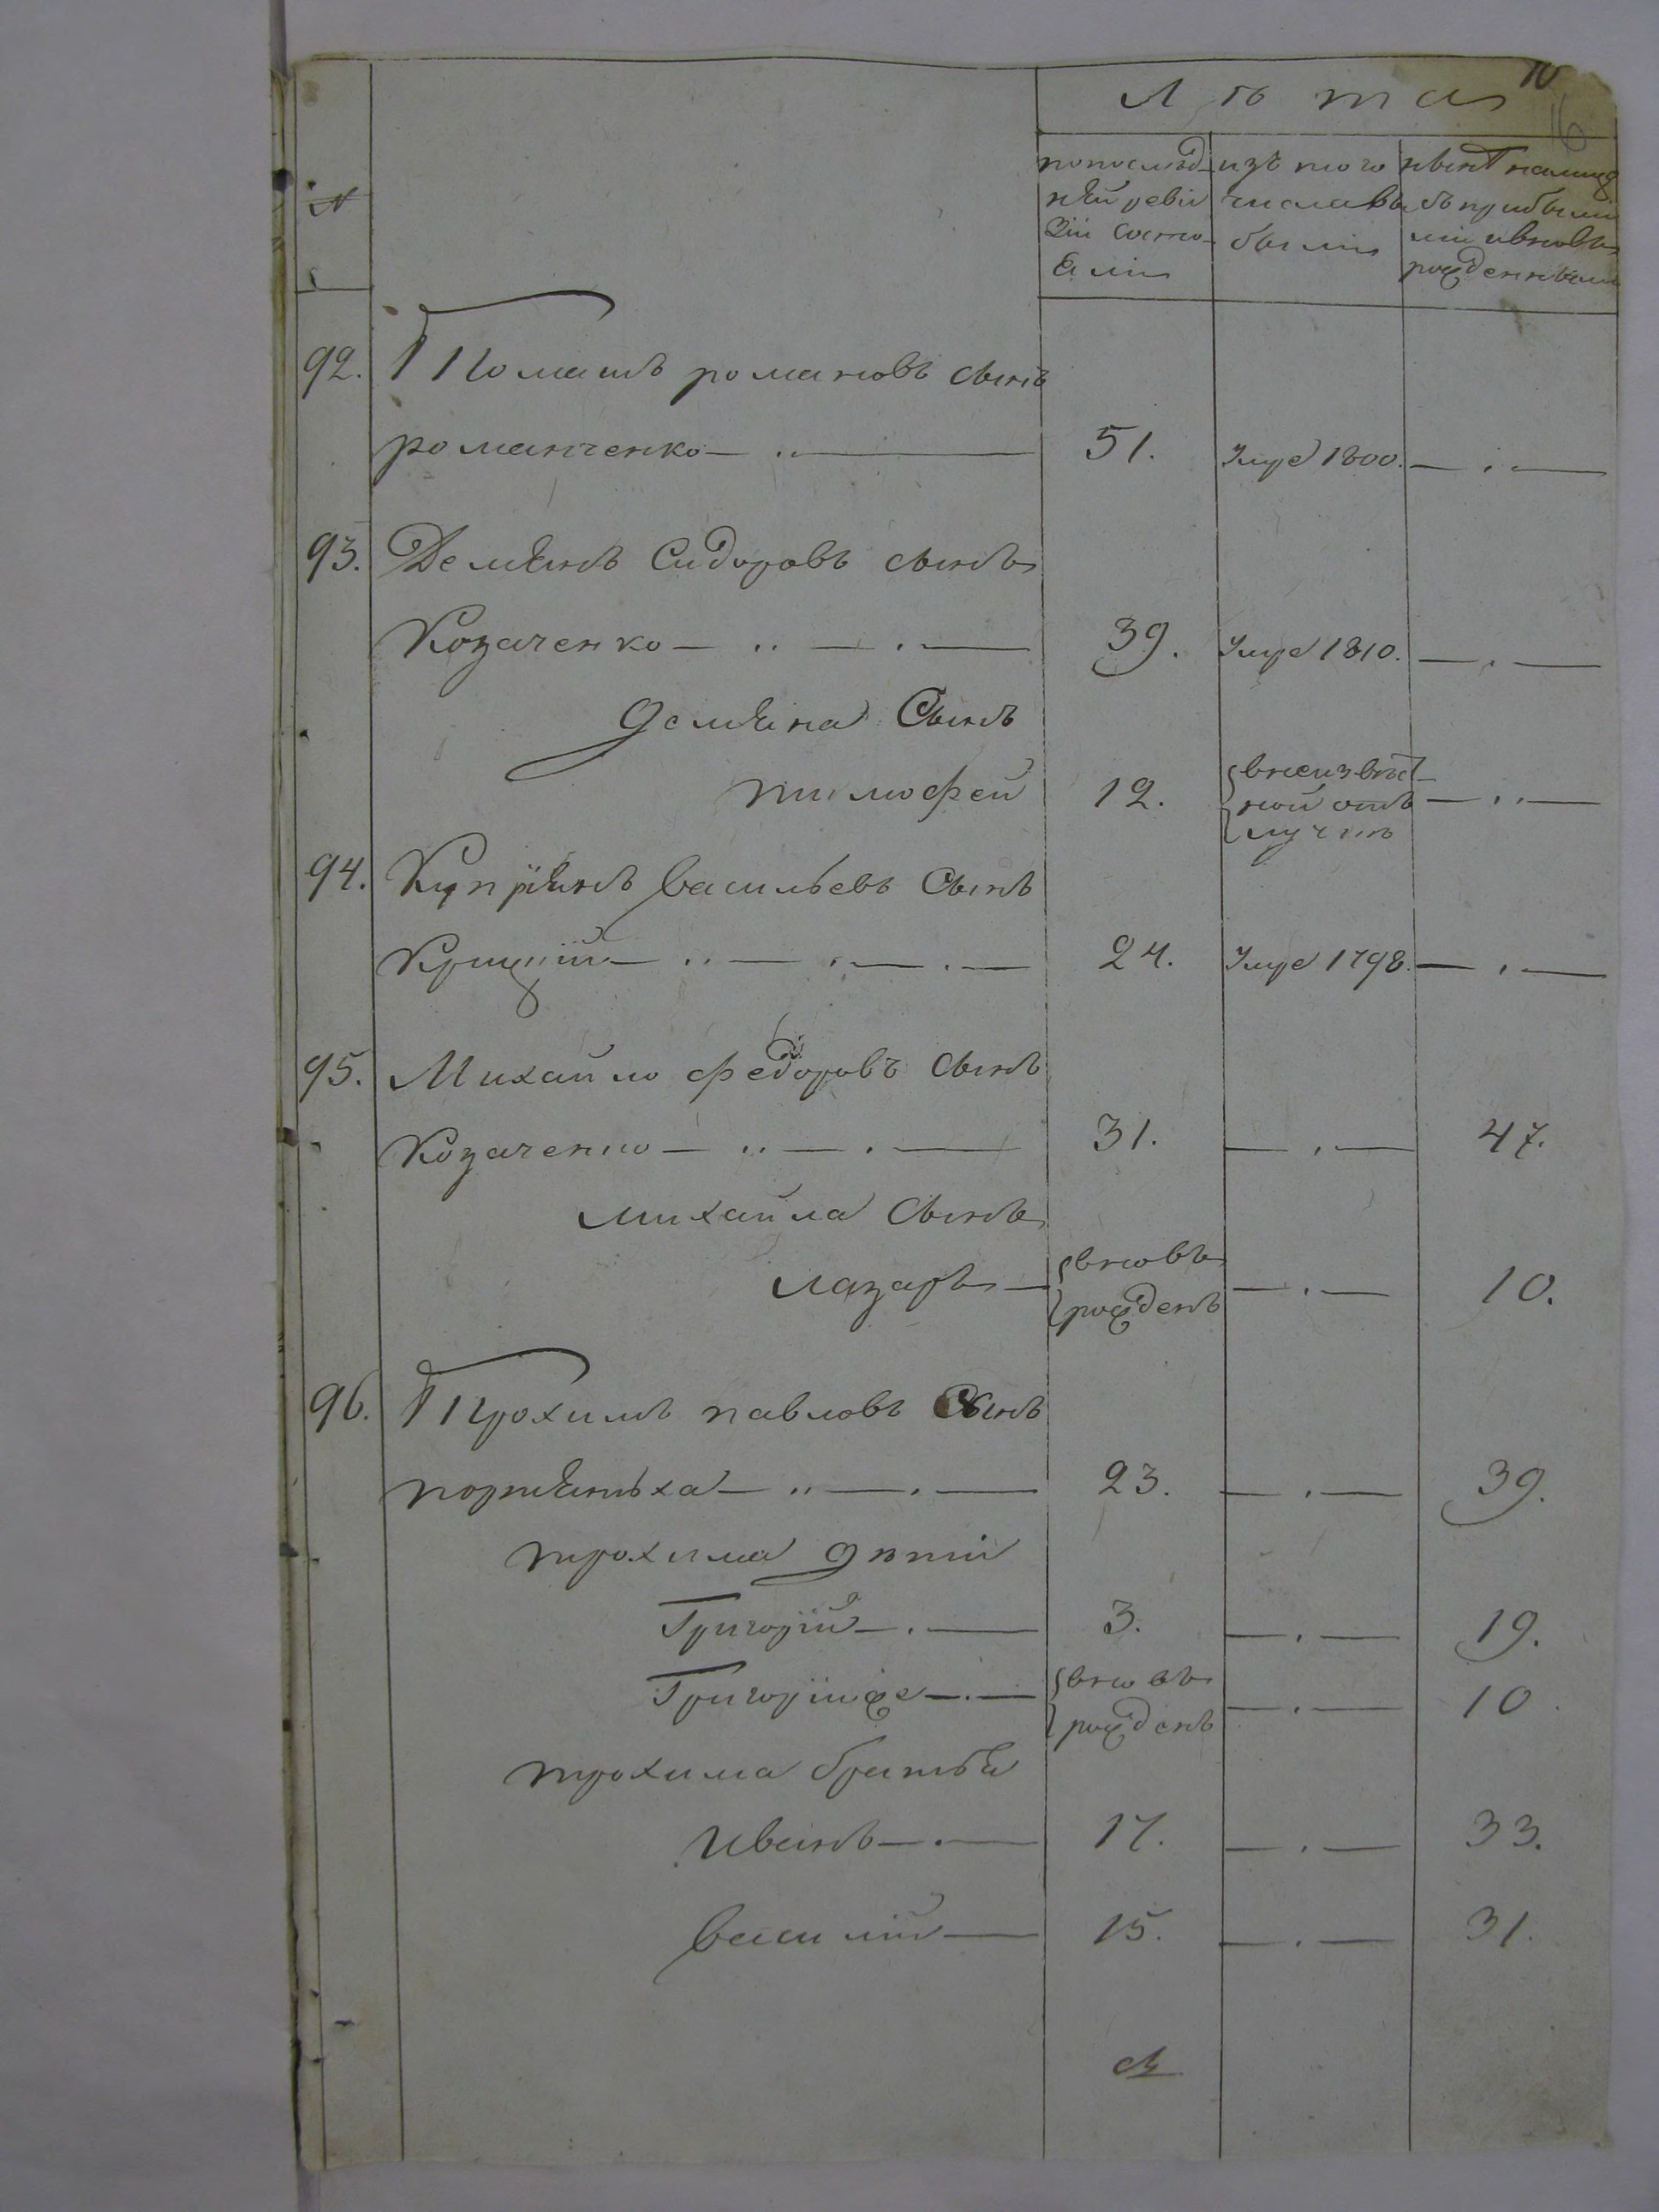 10
16
Лѣта
№
попослѣд-
нѣй реви
зіи состо-
яли
изъ того
числа вы
были
нынѣ налицо
съ прибылы
ми ивновь
рожденными
92. Томашъ романовъ сынъ
романченко — 51. Умре 1800. —
93. Демянъ Сидоровъ сынъ
Козаченко — 39. Умре 1810. —
демяна Сынъ
тимофей 12. внеизвѣст-
ной отъ
лучкѣ —
94. Купріянъ васильевъ Сынъ
24. Умре 1798. —
95. Михайло федоровъ сынъ
Козаченко — 31. — 47.
михайла сынъ
лазарь — вновь
рожденъ — 10.
96. Трохимъ павловъ Сынъ
23. — 39.
трохима дѣти
Григорій — 3. — 19.
Григорійже — вновь
рожденъ — 10
трохима братья
иванъ — 17. — 33.
василій — 15. — 31.